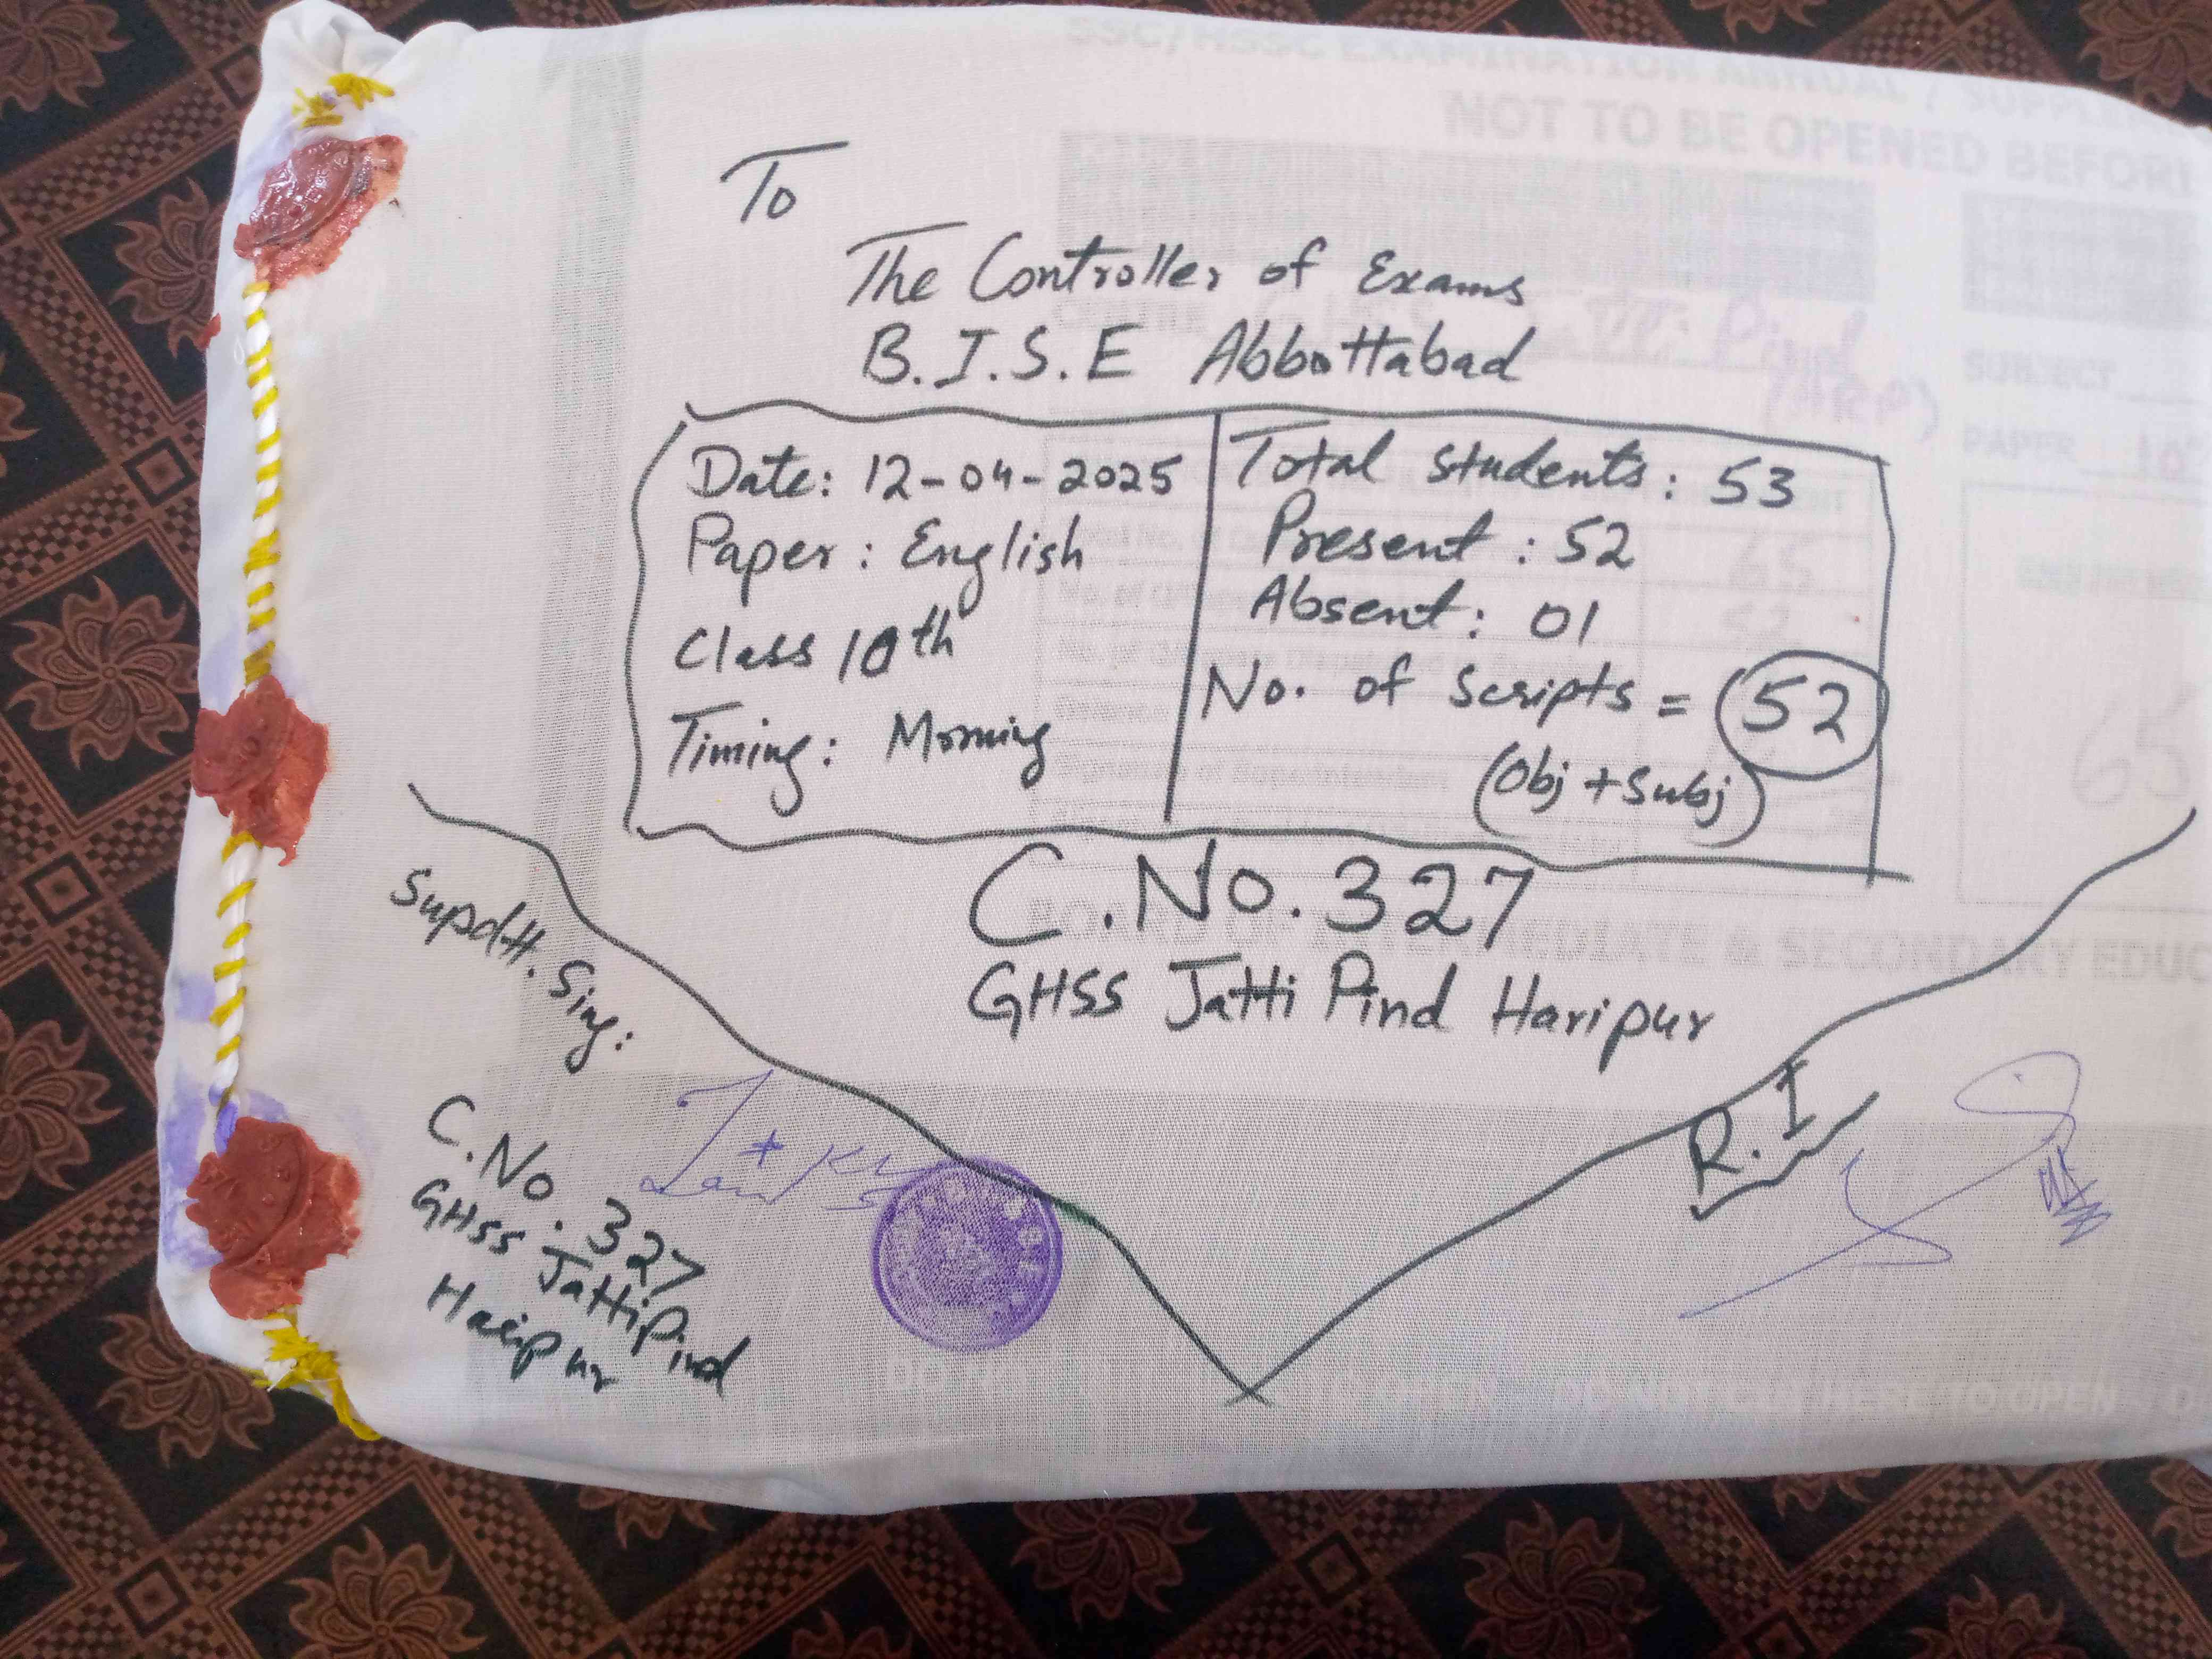 SSC/HSSC EXAMINATION ANNUAL /
NOT TO BE OPENED BEFORE
To
The Controller of Exams
B.I.S.E Abbottabad
Pind
SUBJECT
PAPER
Date: 12-04-2025
Paper: English
Class 10th
Timing: Morning
Total students: 53
Present: 52
Absent: 01
No. of Scripts = 52
(Obj + Subj)
65
C.No. 327
GHSS Jatti Pind Haripur
& SECONDARY EDUC
Supdtt. Sing:
C.No. 327
GHSS Jatti Pind
Haripur
R.I
HERE TO OPEN